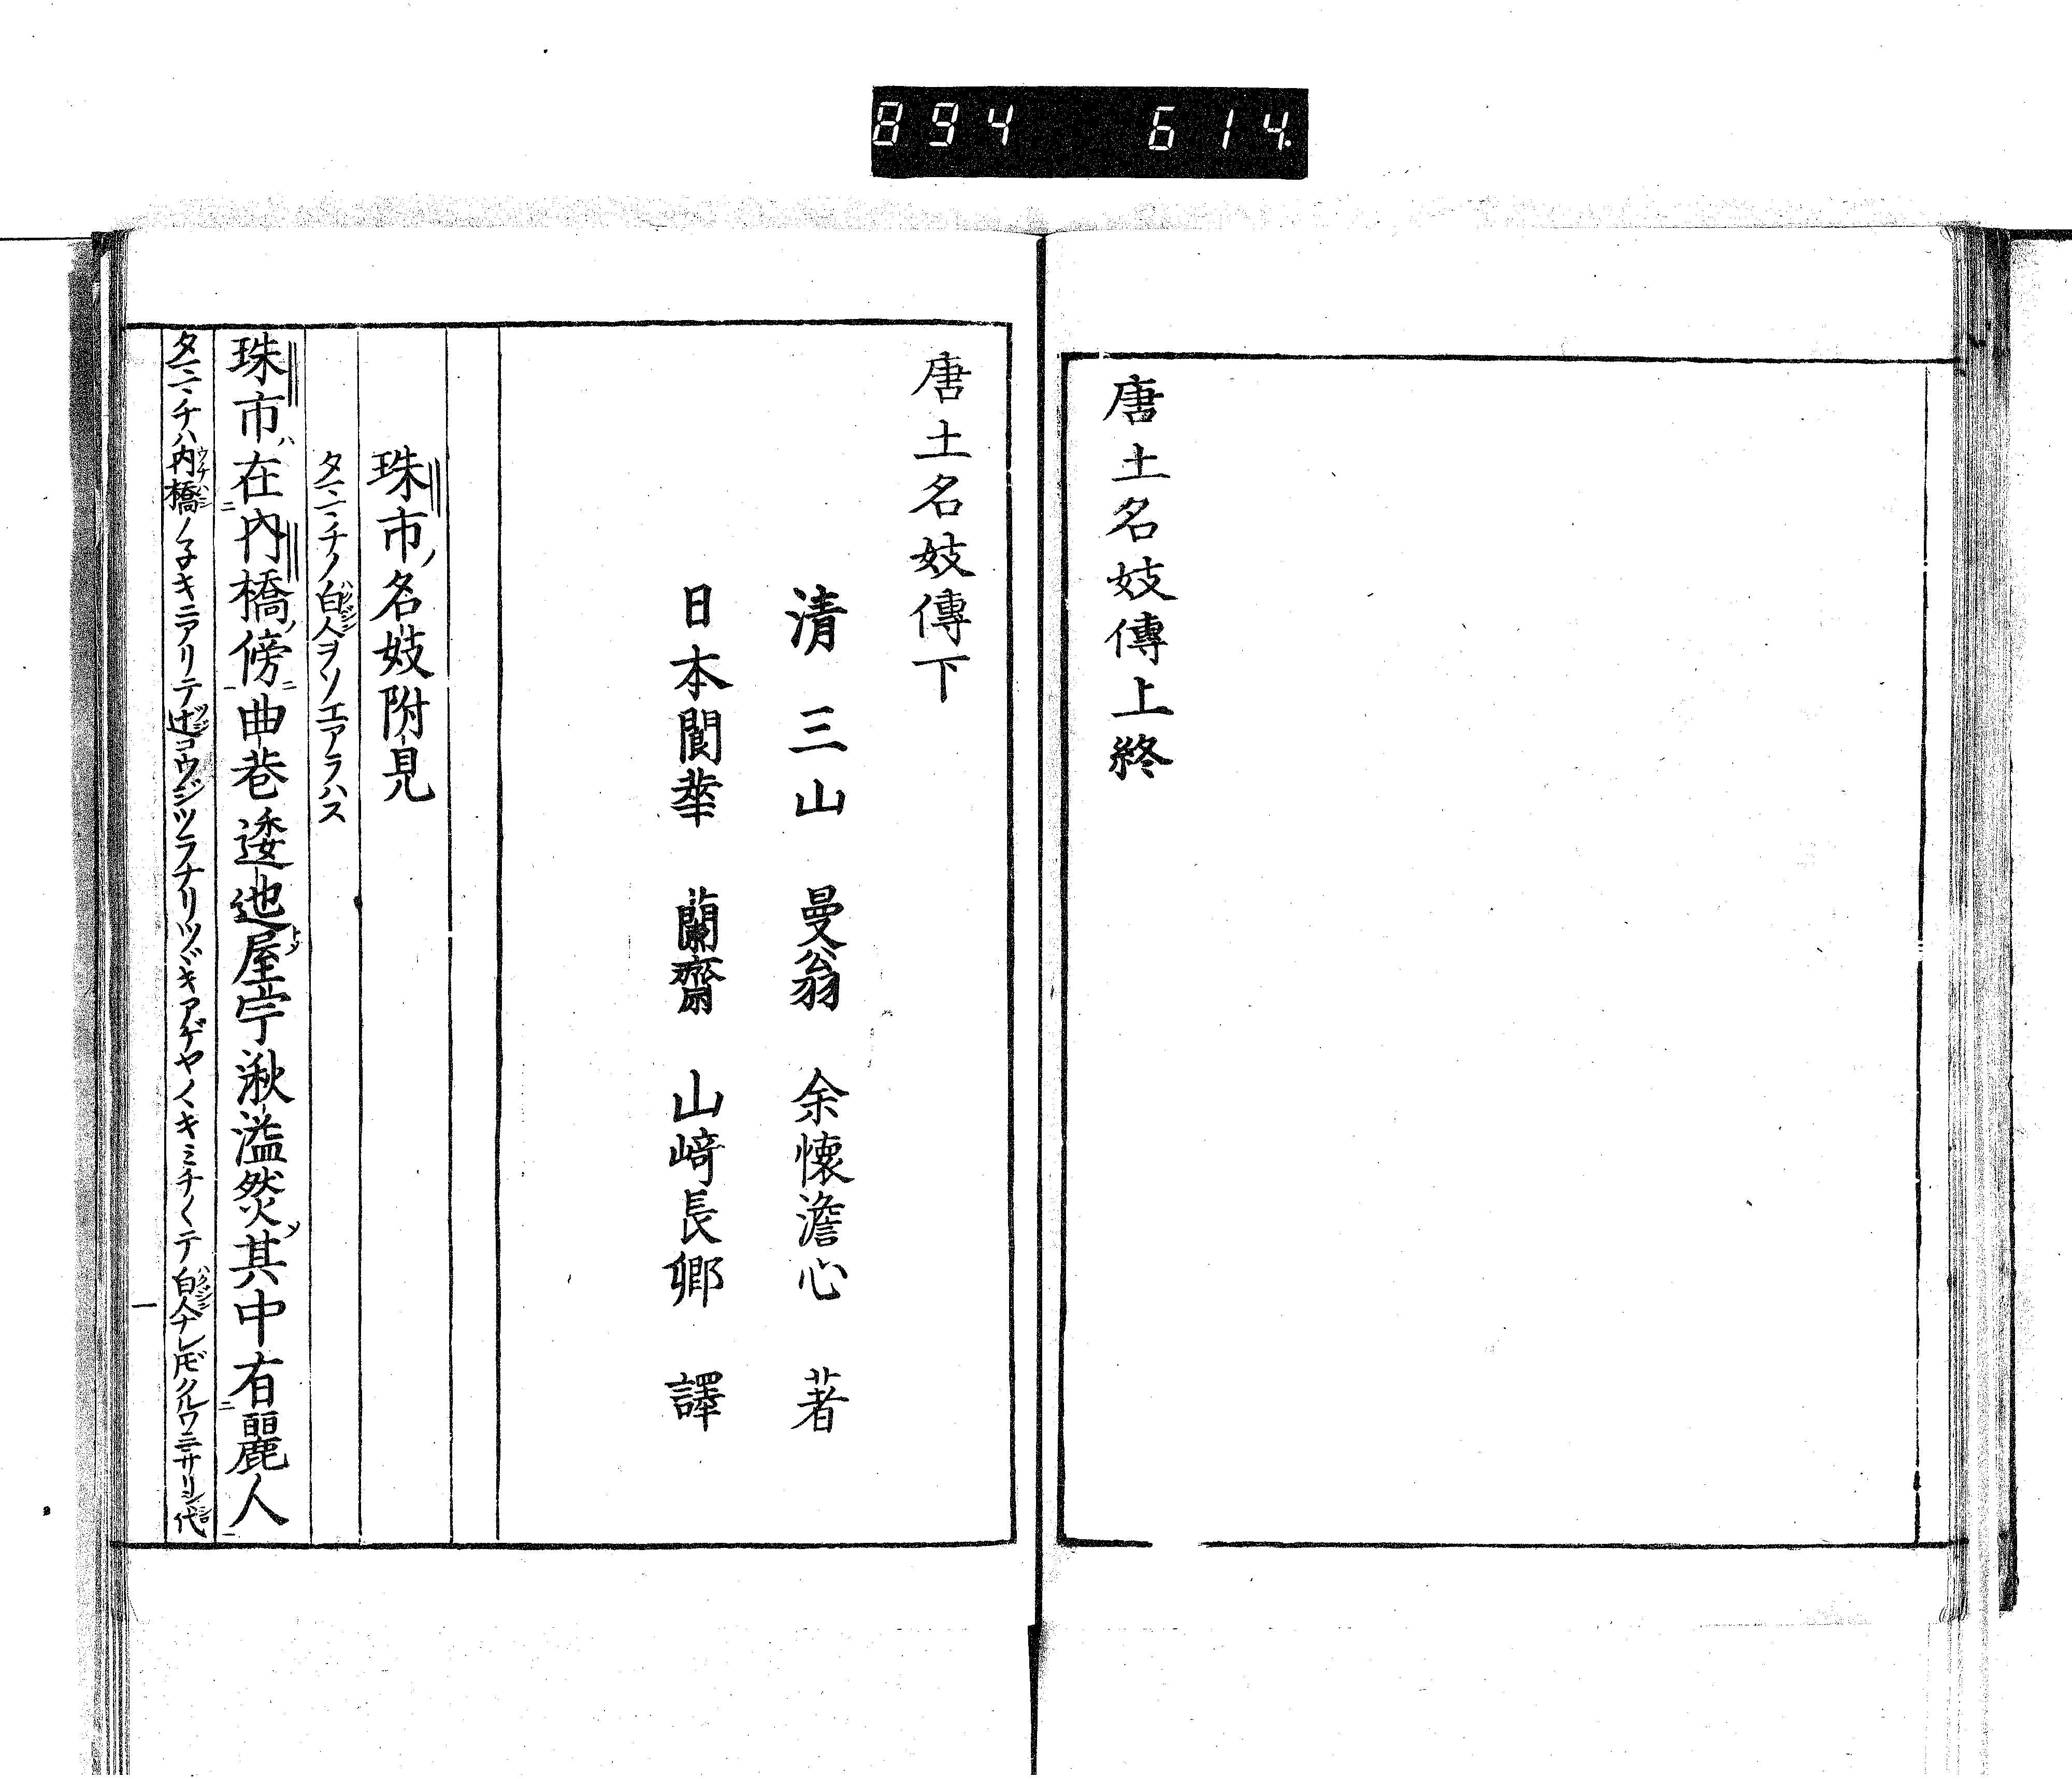 894 614
唐土名妓傳上終
唐土名妓傳下
清 三山 曼翁 余懷澹心 著
日本閬華 蘭齋 山﨑長卿 譯
珠市ノ名妓附見
タニマチノ白人ヲソエアラハス
珠市ハ在内橋ノ傍ニ曲巷逶迤屋宇湫溢然其中有麗人
タニマチハ内橋ノ子キニアリテ辻コウジツラナリツヾキアゲヤノキミチ〳〵テ白人ナレ𪜈クルワニサリシ代
一